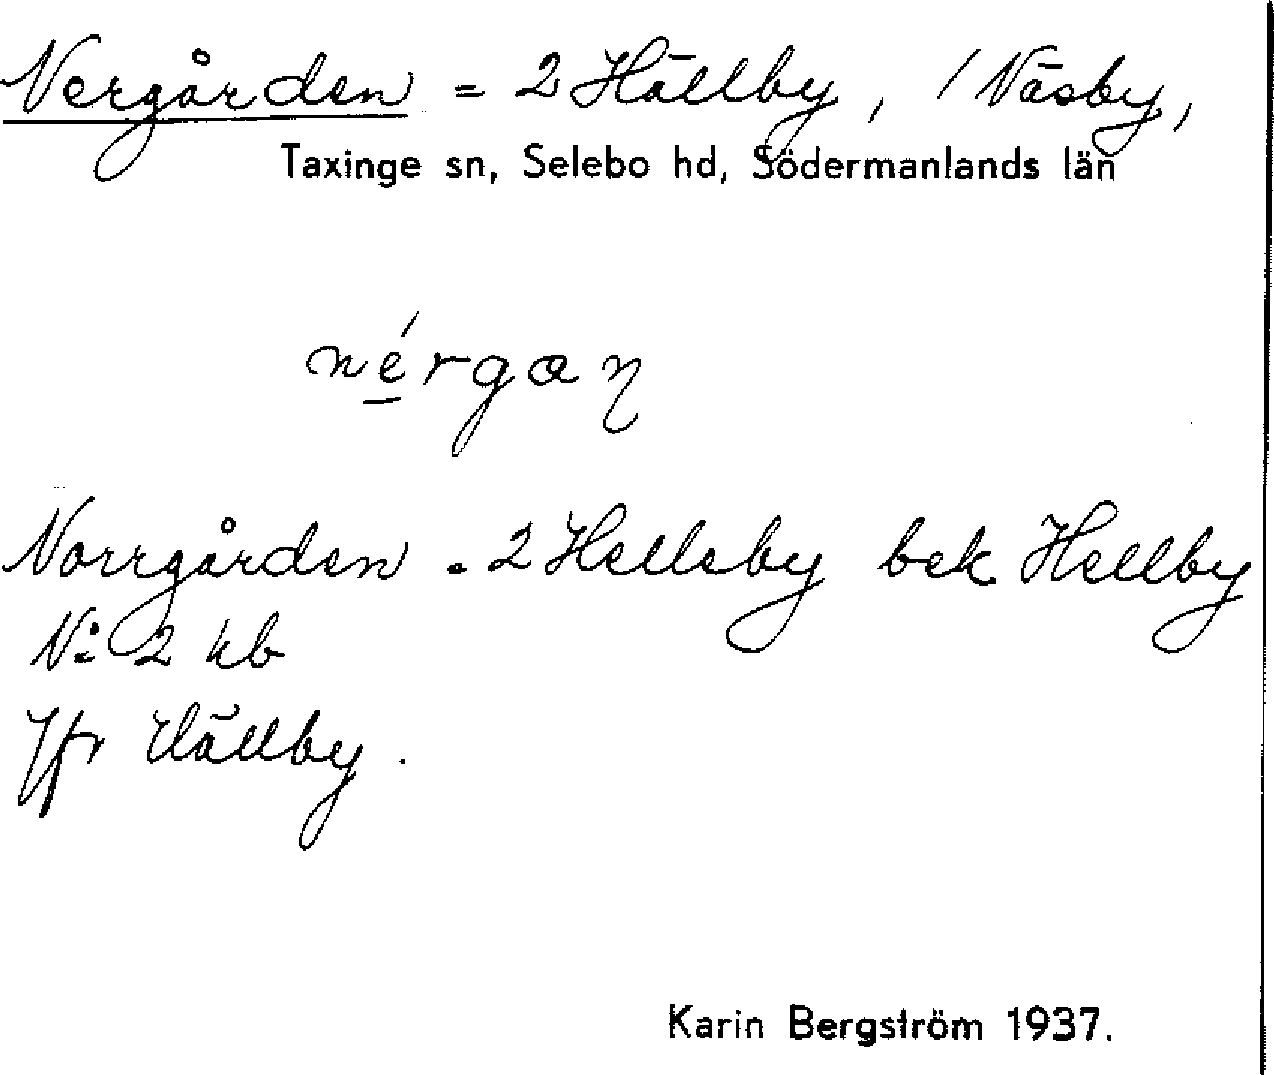 Nergården = 2 Hällby, 1 Näsby,
Taxinge sn, Selebo hd, Södermanlands län
nérgaŋ
Norrgården = 2 Helleby bek Hellby
N: 2 kb
Jfr Hällby.
Karin Bergström 1937.